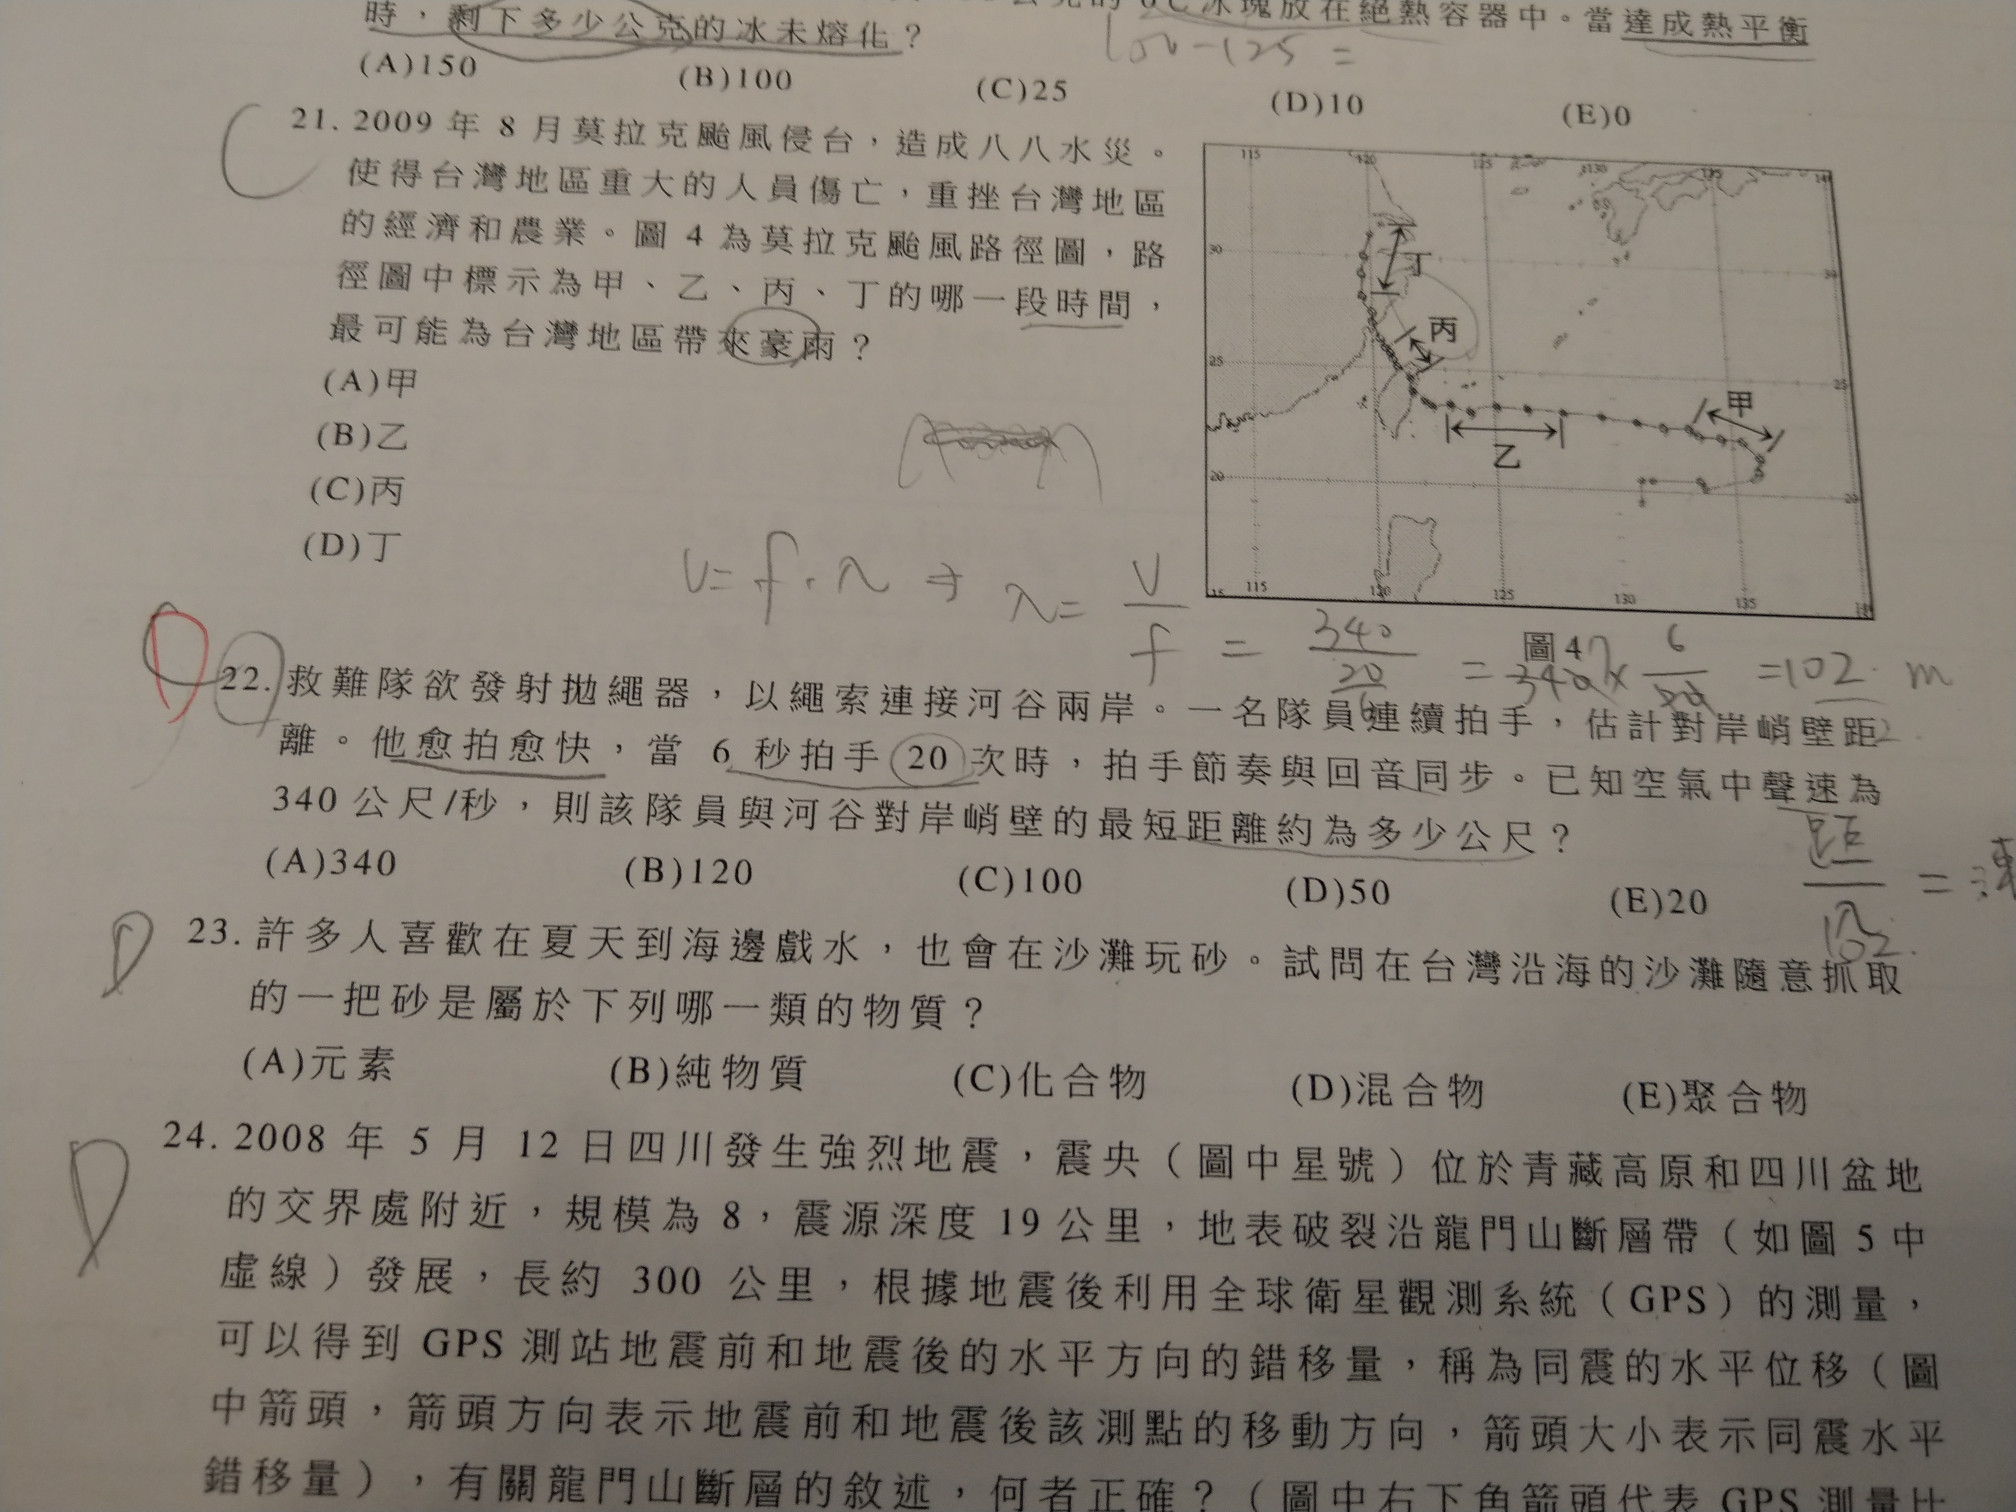 冰塊放在絕熱容器中。當達成熱平衡
時，剩下多少公克的冰未熔化？
100-125=
(A)150 (B)100 (C)25 (D)10 (E)0
21. 2009 年 8 月莫拉克颱風侵台，造成八八水災。
使得台灣地區重大的人員傷亡，重挫台灣地區
的經濟和農業。圖 4 為莫拉克颱風路徑圖，路
徑圖中標示為甲、乙、丙、丁的哪一段時間，
最可能為台灣地區帶來豪雨？
(A)甲
(B)乙
(C)丙
(D)丁
115 120 125 130 135 140
30 30
丁
丙
25 25
甲
乙
20 20
15 115 120 125 130 135
圖 4
v=f·λ ⇒ λ= v/f = 340 / 20/6 = 340 × 6/20 =102 m
22. 救難隊欲發射拋繩器，以繩索連接河谷兩岸。一名隊員連續拍手，估計對岸峭壁距
離。他愈拍愈快，當 6 秒拍手 20 次時，拍手節奏與回音同步。已知空氣中聲速為
340 公尺/秒，則該隊員與河谷對岸峭壁的最短距離約為多少公尺？
(A)340 (B)120 (C)100 (D)50 (E)20
23. 許多人喜歡在夏天到海邊戲水，也會在沙灘玩砂。試問在台灣沿海的沙灘隨意抓取
的一把砂是屬於下列哪一類的物質？
(A)元素 (B)純物質 (C)化合物 (D)混合物 (E)聚合物
24. 2008 年 5 月 12 日四川發生強烈地震，震央（圖中星號）位於青藏高原和四川盆地
的交界處附近，規模為 8，震源深度 19 公里，地表破裂沿龍門山斷層帶（如圖 5 中
虛線）發展，長約 300 公里，根據地震後利用全球衛星觀測系統（GPS）的測量，
可以得到 GPS 測站地震前和地震後的水平方向的錯移量，稱為同震的水平位移（圖
中箭頭，箭頭方向表示地震前和地震後該測點的移動方向，箭頭大小表示同震水平
錯移量），有關龍門山斷層的敘述，何者正確？（圖中右下角箭頭代表 GPS 測量比